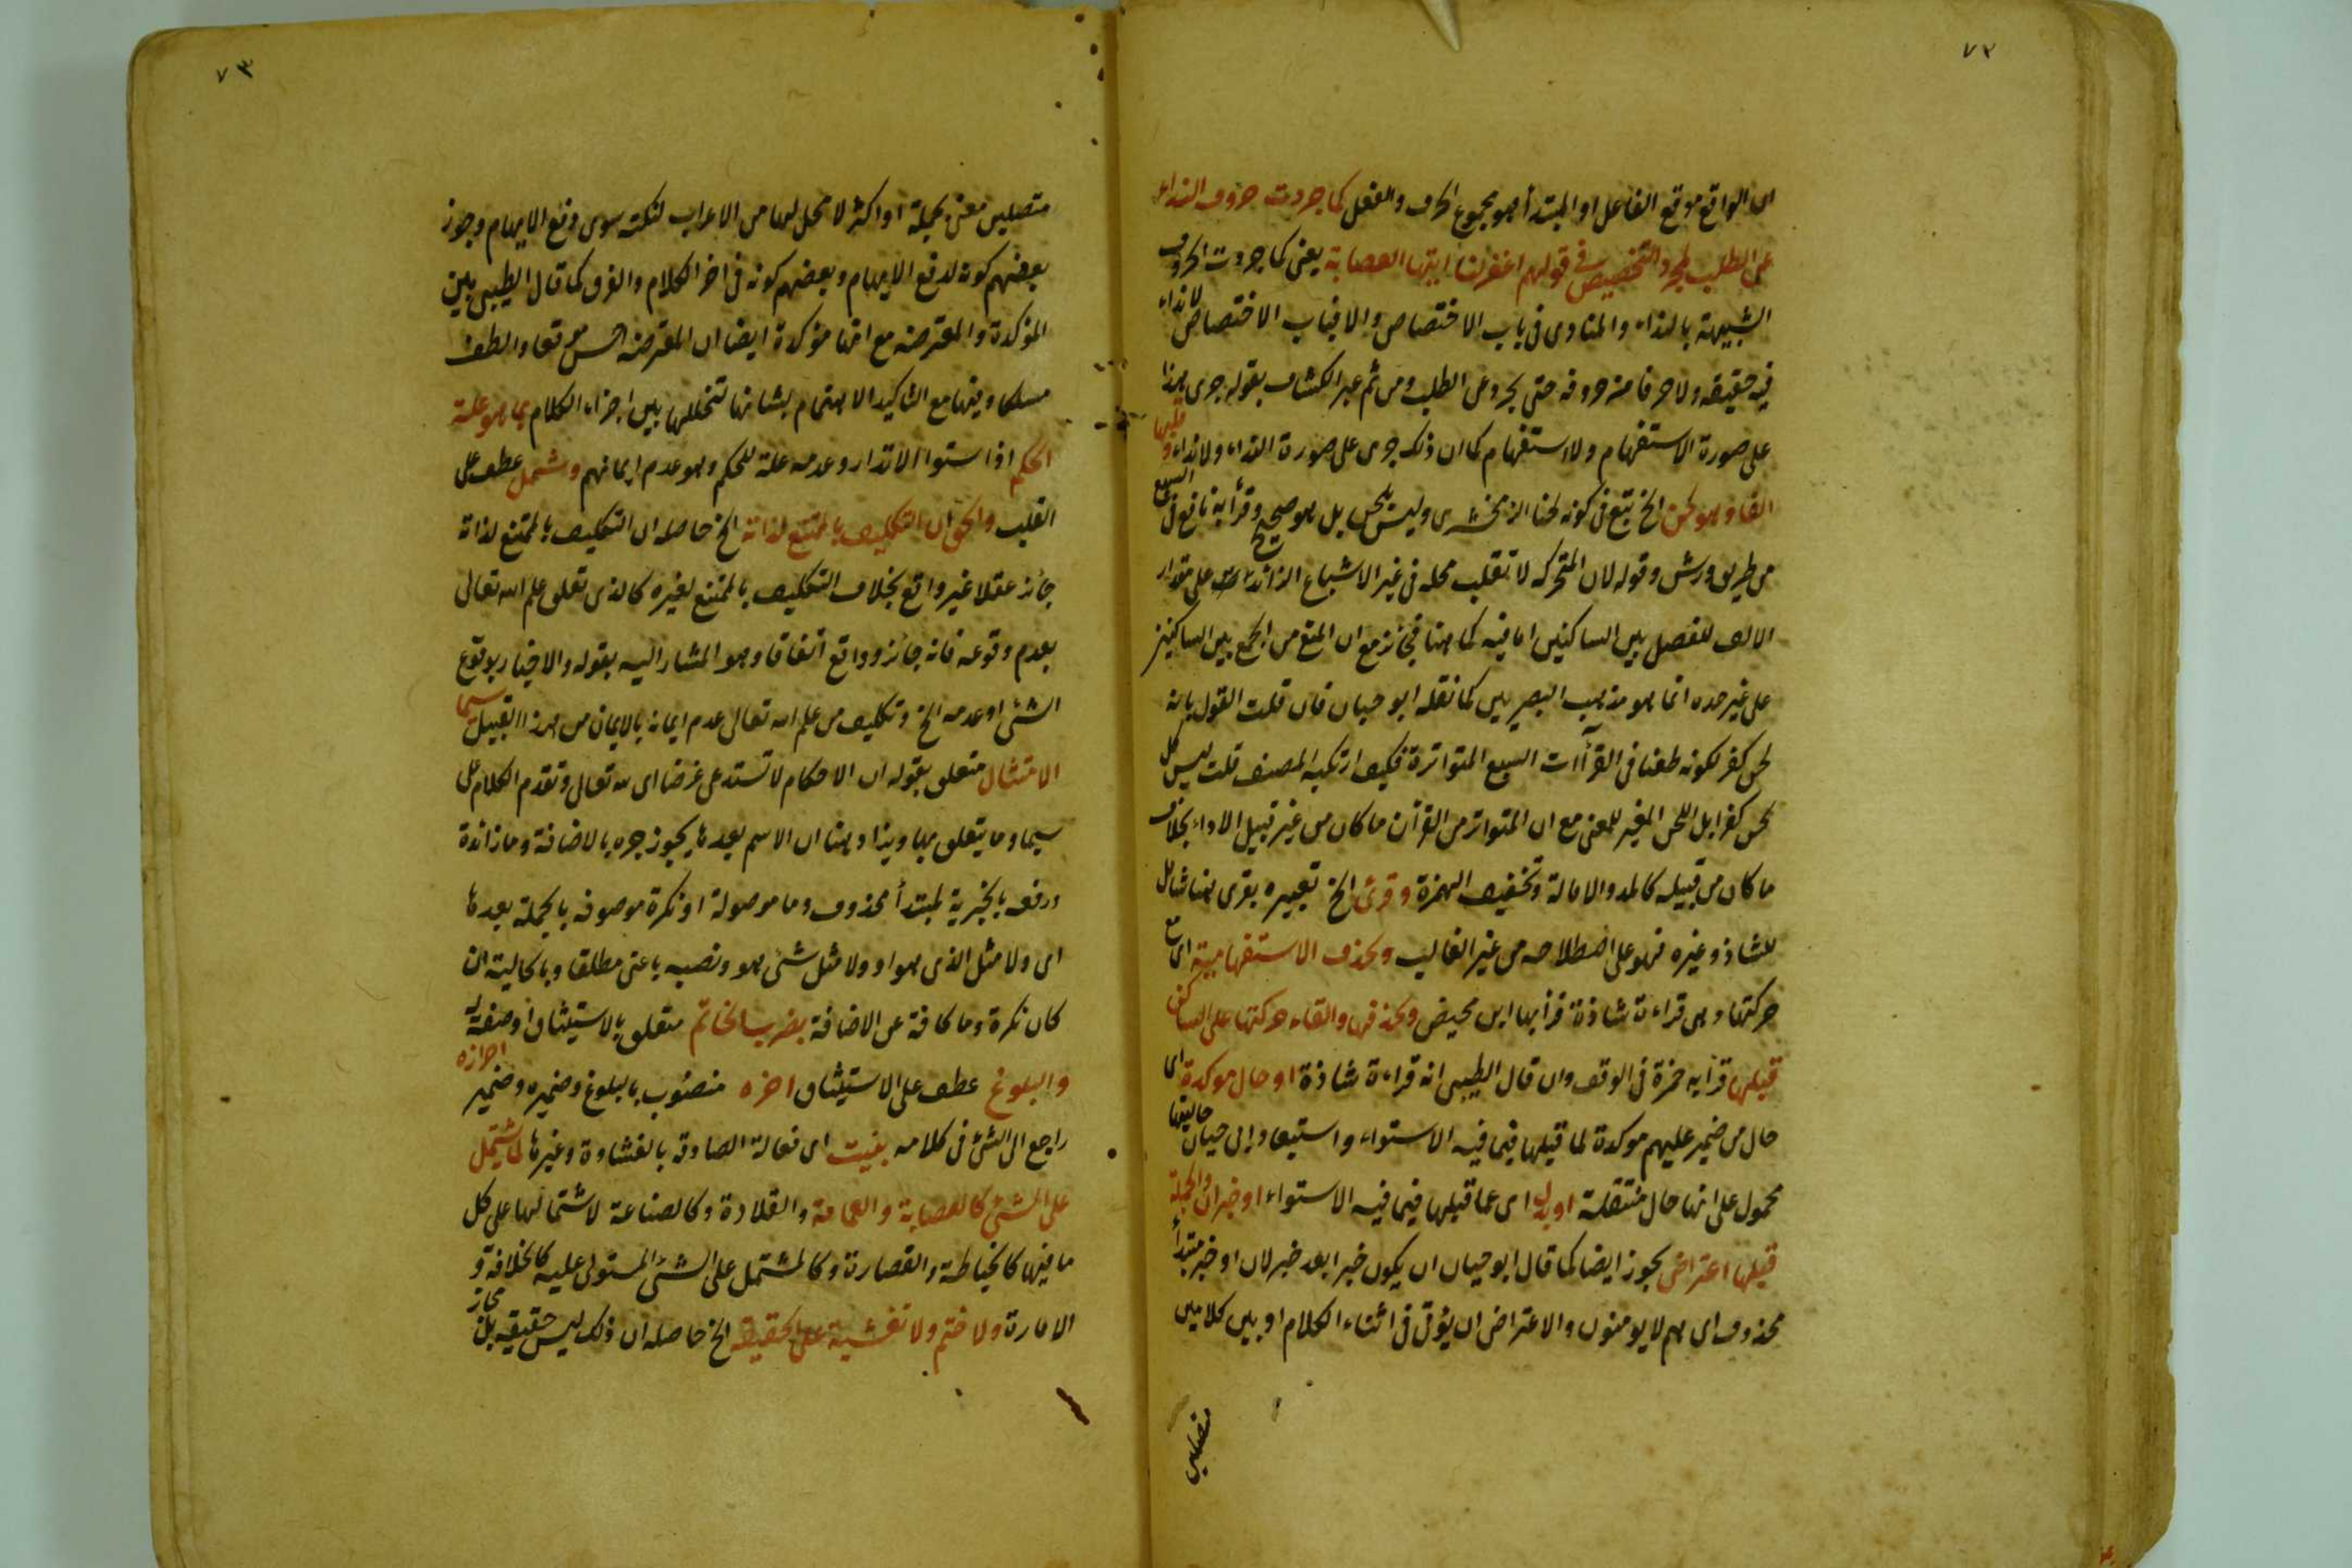 ٧٢
اى الواقع موقع الفاعل او المبتدأ هو مجموع الحرف والفعل كما جردت حروف النداء
عن الطلب لمجرد التخصيص فى قولهم اغفر لنا ايتها العصابة يعنى كما جردت الحروف
الشبيهة بالنداء والمنادى فى باب الاختصاص والا فباب الاختصاص لا نداء
فيه حقيقة ولا حرفا من حروفه حتى يجرد عن الطلب ومن ثم عبر الكشاف بقوله جرى هذا
على صورة الاستفهام ولا استفهام كما ان ذلك جرى على صورة النداء ولا نداء وقلبها
الفا وهو لحن الخ تبع فى كونه لحنا الزمخشرى وليس بلحن بل هو صحيح وقرأ به نافع فى السبع
من طريق ورش وقوله لان المتحركة لا تقلب محله فى غير الاشباع الزائد على مقدار
الالف للفصل بين الساكنين اما فيه كما هنا فجائز مع ان المنع من الجمع بين الساكنين
على غير حده انما هو مذهب البصريين كما نقله ابو حيان فان قلت القول بانه
لحن كفر لكونه طعنا فى القرآات السبع المتواترة فكيف ارتكبه المصنف قلت ليس كل
لحن كفرا بل اللحن المغير للمعنى مع ان المتواتر من القرآن ما كان من غير قبيل الاداء بخلاف
ما كان من قبيله كالمد والامالة وتخفيف الهمزة وقرئ الخ تعبيره بقرى هنا شامل
للشاذ وغيره فهو على اصطلاحه من غير الغالب وبحذف الاستفهامية اى مع
حركتها وهى قراءة شاذة قرأ بها ابن محيض وبحذفها والقاء حركتها على الساكن
قبلها قرأ به حمزة فى الوقف وان قال الطيبى انه قراءة شاذة او حال موكدة اى
حال من ضمير عليهم موكدة لما قبلها فيما فيه الاستواء واستبعاد ابى حيان حاليتها
محمول على انها حال منتقلة او بدل اى عما قبلها فيما فيه الاستواء او خبر ان والجملة
قبلها اعتراض يجوز ايضا كما قال ابو حيان ان يكون خبرا بعد خبر لان او خبر مبتدأ
محذوف اى هم لا يومنون والاعتراض ان يؤتى فى اثناء الكلام او بين كلامين
متصلين
٧٣
متصلين معنى بجملة او اكثر لا محل لها من الاعراب لنكتة سوى دفع الايهام وجوز
بعضهم كونه لدفع الايهام وبعضهم كونه فى اخر الكلام والفرق كما قال الطيبى بين
المؤكدة والمعترضة مع انها مؤكدة ايضا ان المعترضة احسن موقعا والطف
مسلكا وفيها مع التاكيد الاهتمام بشانها لتخللها بين اجزاء الكلام بما هو علة
الحكم اذ استوا الانذار وعدمه علة للحكم وهو عدم ايمانهم وشمل عطف على
القلب والحق ان التكليف بالممتنع لذاته الخ حاصله ان التكليف بالممتنع لذاته
جائز عقلا غير واقع بخلاف التكليف بالممتنع لغيره كالذى تعلق علم الله تعالى
بعدم وقوعه فانه جائز وواقع اتفاقا وهو المشار اليه بقوله والاخبار بوقوع
الشئ او عدمه الخ وتكليف من علم الله تعالى عدم ايمانه بالايمان من هذا القبيل سيما
الامتثال متعلق بقوله ان الاحكام لا تستدعى غرضا اى لله تعالى وتقدم الكلام على
سيما وما يتعلق بها ويزاد هنا ان الاسم بعدها يجوز جره بالاضافة وما زائدة
ورفعه بالخبرية لمبتدأ محذوف وما موصولة او نكرة موصوفه بالجملة بعدها
اى ولا مثل الذى هو او ولا مثل شئ هو ونصبه باعنى مطلقا وبالحالية ان
كان نكرة وما كافة عن الاضافة بضرب الخاتم متعلق بالاستيثاق او صفة له
والبلوغ عطف على الاستيثاق اخره منصوب بالبلوغ وضميره وضمير احرازه
راجع الى الشئ فى كلامه بنيت اى فعالة الصادقة بالغشاوة وغيرها لما يشتمل
على الشئ كالعصابة والعمامة والقلادة وكالصناعة لاشتمالها على كل
ما فيها كالخياطة والقصارة وكالمشتمل على الشئ المستولى عليه كالخلافة و
الامارة ولا ختم ولا تغشية على الحقيقة الخ حاصله ان ذلك ليس حقيقة بل مجاز